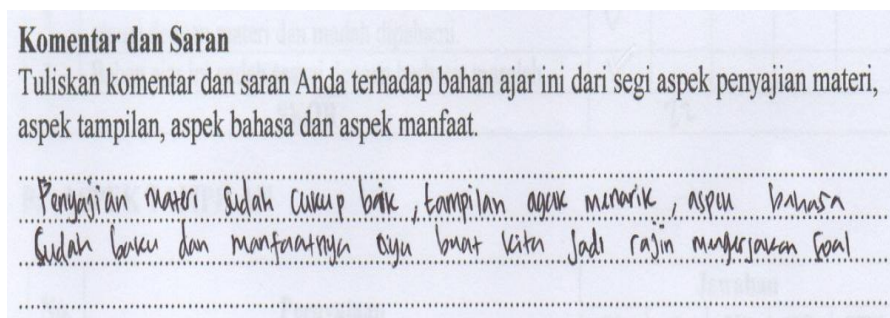 Komentar dan Saran
Tuliskan komentar dan saran Anda terhadap bahan ajar ini dari segi aspek penyajian materi,
aspek tampilan, aspek bahasa dan aspek manfaat.
Penyajian materi sudah cukup baik, tampilan agak menarik, aspek bahasa
sudah baku dan manfaatnya buat kita jadi rajin mengerjakan soal